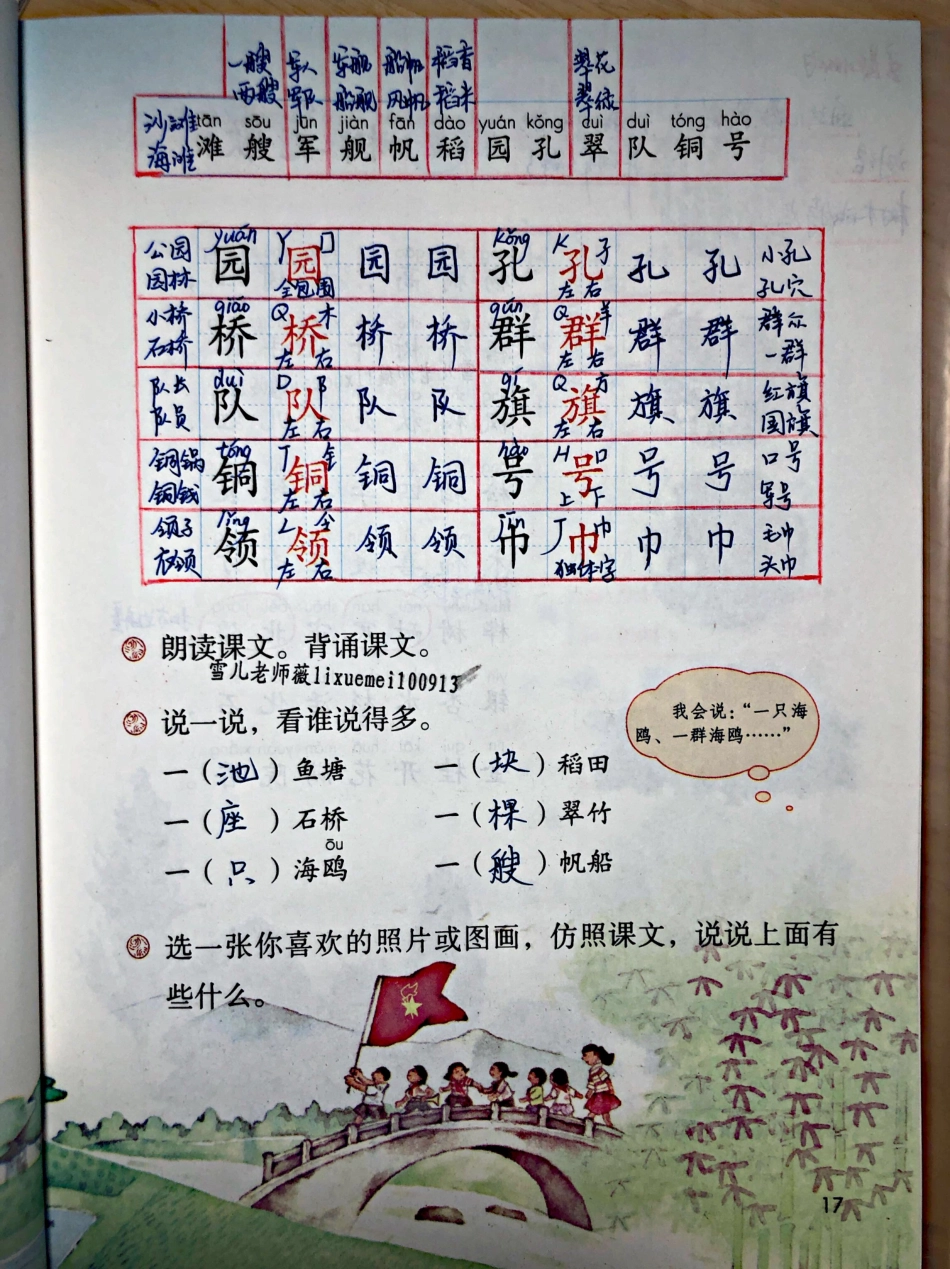 一艘 军人 军舰 船帆 稻香 翠花
两艘 军队 船舰 风帆 稻米 翠绿
沙滩 tān sōu jūn jiàn fān dào yuán kǒng cuì duì tóng hào
海滩 滩 艘 军 舰 帆 稻 园 孔 翠 队 铜 号
yuán Y 囗 kǒng K 子
公园 园 园 园 园 孔 孔 孔 孔 小孔
园林 全包围 左右 孔穴
qiáo Q 木 qún Q 羊
小桥 桥 桥 桥 桥 群 群 群 群 群众
石桥 左右 左右 一群
duì D 阝 qí Q 方
队长 队 队 队 队 旗 旗 旗 旗 红旗
队员 左右 左右 国旗
tóng T 钅 hào H 口
铜锅 铜 铜 铜 铜 号 号 号 号 口号
铜钱 左右 上下 军号
lǐng L 令 jīn J 巾
领子 领 领 领 领 巾 巾 巾 巾 毛巾
衣领 左右 独体字 头巾
朗读课文。背诵课文。
雪儿老师薇lixuemei100913
说一说，看谁说得多。
我会说：“一只海
鸥、一群海鸥……”
一（池）鱼塘 一（块）稻田
一（座）石桥 一（棵）翠竹
ōu
一（只）海鸥 一（艘）帆船
选一张你喜欢的照片或图画，仿照课文，说说上面有
些什么。
17